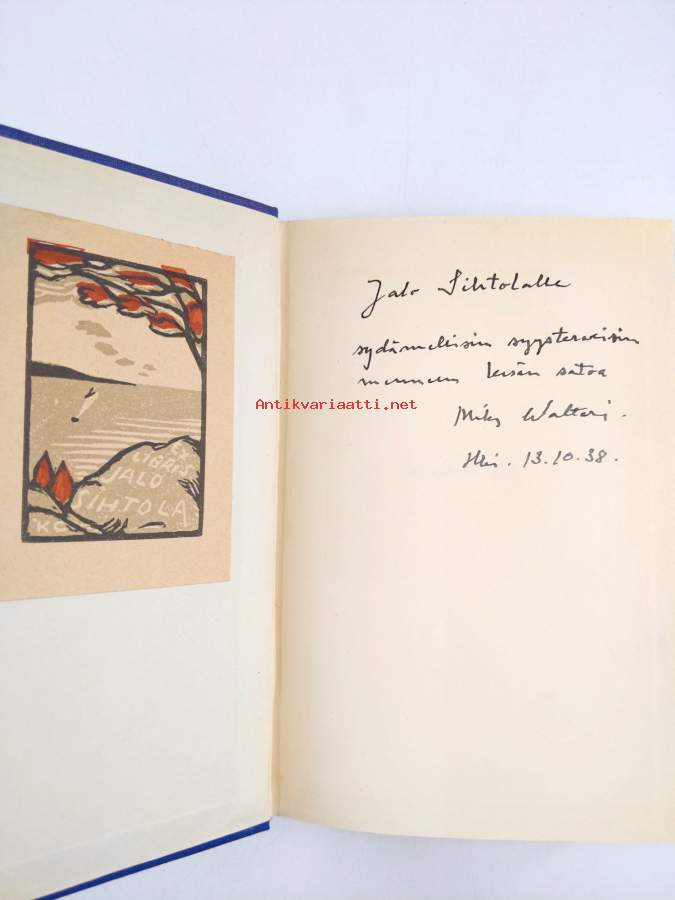 EX
LIBRIS
JALO
SIHTOLA
KC
Jalo Sihtolalle
sydämellisin syysterveisin
menneen kesän satoa
Mika Waltari.
Hki. 13.10.38.
Antikvariaatti.net